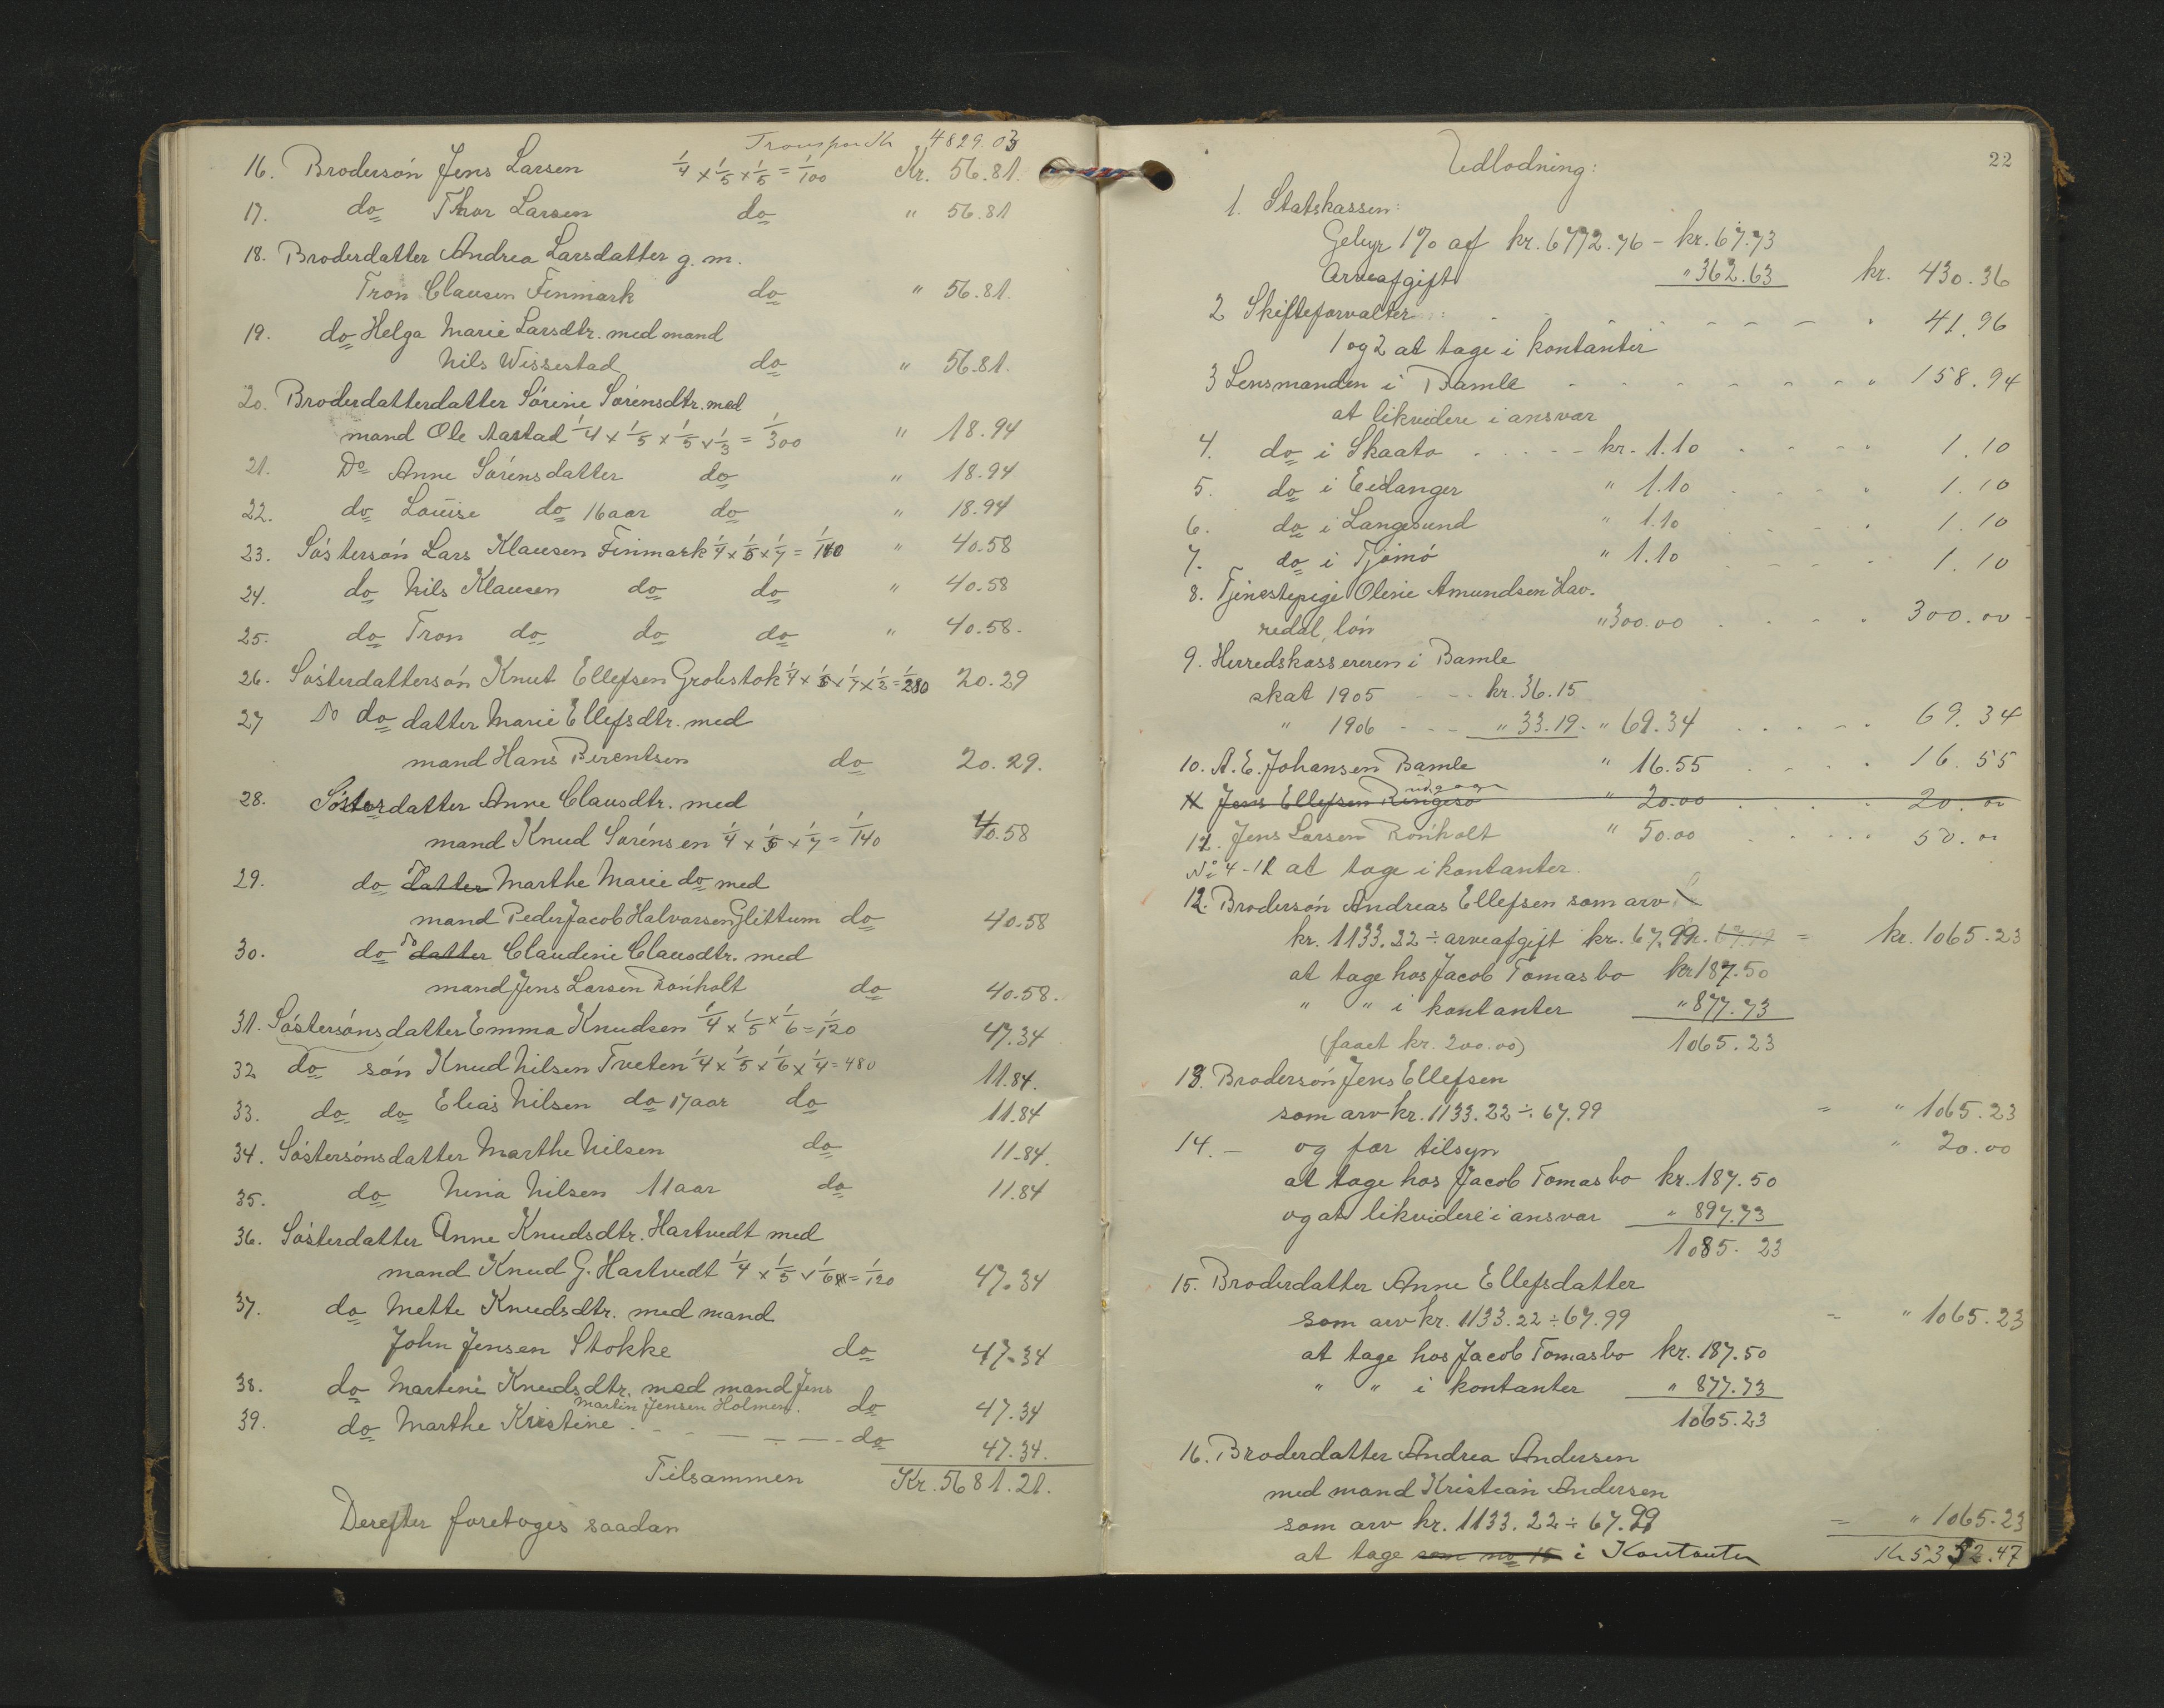 Transport Kr. 4829.03
16. Brodersön Jens Larsen 1/4 x 1/5 x 1/5 = 1/100 Kr. 56.81.
17. do Thor Larsen do " 56.81
18. Broderdatter Andrea Larsdatter g. m.
Tron Clausen Finmark do " 56.81.
19. do Helga Marie Larsdtr. med mand
Nils Wissestad do " 56.81.
20. Broderdatterdatter Sörine Sörensdtr. med
mand Ole Aastad 1/4 x 1/5 x 1/5 x 1/3 = 1/300 " 18.94
21. Do Anne Sörensdatter do " 18.94
22. do Louise do 16 aar do " 18.94
23. Söstersön Lars Klausen Finmark 1/4 x 1/5 x 1/7 = 1/140 " 40.58
24. do Nils Klausen do do " 40.58
25. do Tron do do do " 40.58.
26. Sösterdattersön Knut Ellefsen Grobstok 1/4 x 1/5 x 1/7 x 1/2 = 1/280 20.29
27 Do do datter Marie Ellefsdtr. med
mand Hans Berentsen do 20.29.
28. Sösterdatter Anne Clausdtr. med
mand Knud Sörensen 1/4 x 1/5 x 1/7 = 1/140 40.58
29. do datter Do Marthe Marie do med
mand Peder Jacob Halvorsen Glittum do 40.58
30. do datter Do Claudine Clausdtr. med
mand Jens Larsen Rönholt do 40.58.
31. Söstersönsdatter Emma Knudsen 1/4 x 1/5 x 1/6 = 1/120 47.34
32 do sön Knud Nilsen Tveten 1/4 x 1/5 x 1/6 x 1/4 = 480 11.84.
33. do do Elias Nilsen do 17 aar do 11.84
34. Söstersönsdatter Marthe Nilsen do 11.84.
35. do Nina Nilsen 11 aar do 11.84
36. Sösterdatter Anne Knudsdtr. Hartvedt med
mand Knud G. Hartvedt 1/4 x 1/5 x 1/6 = 1/120 47.34
37. do Mette Knudsdtr. med mand
John Jensen Stokke do 47.34
38. do Martine Knudsdtr. med mand Jens
Martin Jensen Holmen. do 47.34
39. do Marthe Kristine . - - — — — do 47.34.
Tilsammen Kr. 5681.21.
Derefter foretoges saadan
22
Udlodning:
1. Statskassen:
Gebyr 1% af kr. 6772.76 - kr. 67.73
Arveafgift " 362.63 kr. 430.36
2 Skifteforvalter : - - - - - - - " 41.96
1 og 2 at tage i kontanter
3 Lensmanden i Bamle - - - - - - " 158.94
at likvidere i ansvar
4. do i Skaatö . - - - kr. 1.10 . - - " 1.10
5. do i Eidanger " 1.10 . - - " 1.10
6. do i Langesund " 1.10 . - - " 1.10
7. do i Tjömö " 1.10 . - - " 1.10
8. Tjenestepige Oline Amundsen Hav-
redal, lön " 300.00 . . . . 300.00
9. Herredskassereren i Bamle
skat 1905 - - kr. 36.15
" 1906 - - " 33.19. " 69.34 . . . . 69.34
10. A. E. Johansen Bamle " 16.55 . . . . 16.55
11 Jens Ellefsen Ringesö udgaar " 20.00 . . . 20.00
11. Jens Larsen Rönholt " 50.00 . . . . 50.00
No 4-11 at tage i kontanter.
12. Brodersön Andreas Ellefsen som arv
kr. 1133.22 ÷ arveafgift kr. 67.99. 67.99 = kr. 1065.23
at tage hos Jacob Tomasbo kr 187.50
" " i kontanter " 877.73
(faaet kr. 200.00) 1065.23
13. Brodersön Jens Ellefsen
som arv kr. 1133.22 ÷ 67.99 = " 1065.23
14. - og for tilsyn " 20.00
at tage hos Jacob Tomasbo kr. 187.50
og at likvidere i ansvar " 897.73
1085.23
15. Broderdatter Anne Ellefsdatter
som arv kr. 1133.22 ÷ 67.99 = " 1065.23
at tage hos Jacob Tomasbo kr. 187.50
" " i kontanter " 877.73
1065.23
16. Broderdatter Andrea Andersen
med mand Kristian Andersen
som arv kr. 1133.22 ÷ 67.99 = " 1065.23
at tage som no 15 i Kontanter Kr 5352.47